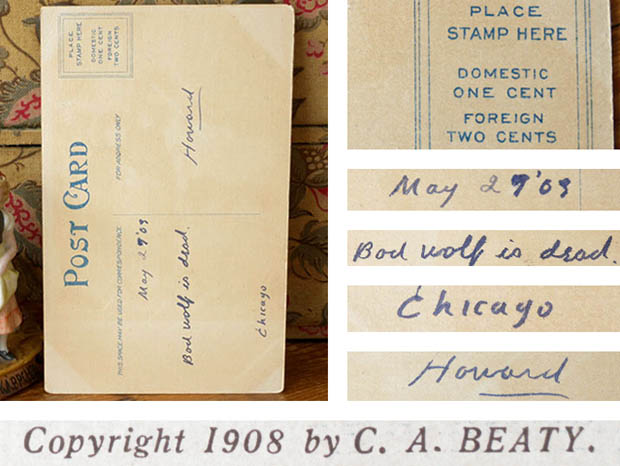 PLACE
STAMP HERE
DOMESTIC
ONE CENT
FOREIGN
TWO CENTS
POST CARD
THIS SPACE MAY BE USED FOR CORRESPONDENCE
FOR ADDRESS ONLY
May 27'09
Bad wolf is dead.
Chicago
Howard
PLACE
STAMP HERE
DOMESTIC
ONE CENT
FOREIGN
TWO CENTS
May 27'09
Bad wolf is dead.
Chicago
Howard
Copyright 1908 by C. A. BEATY.